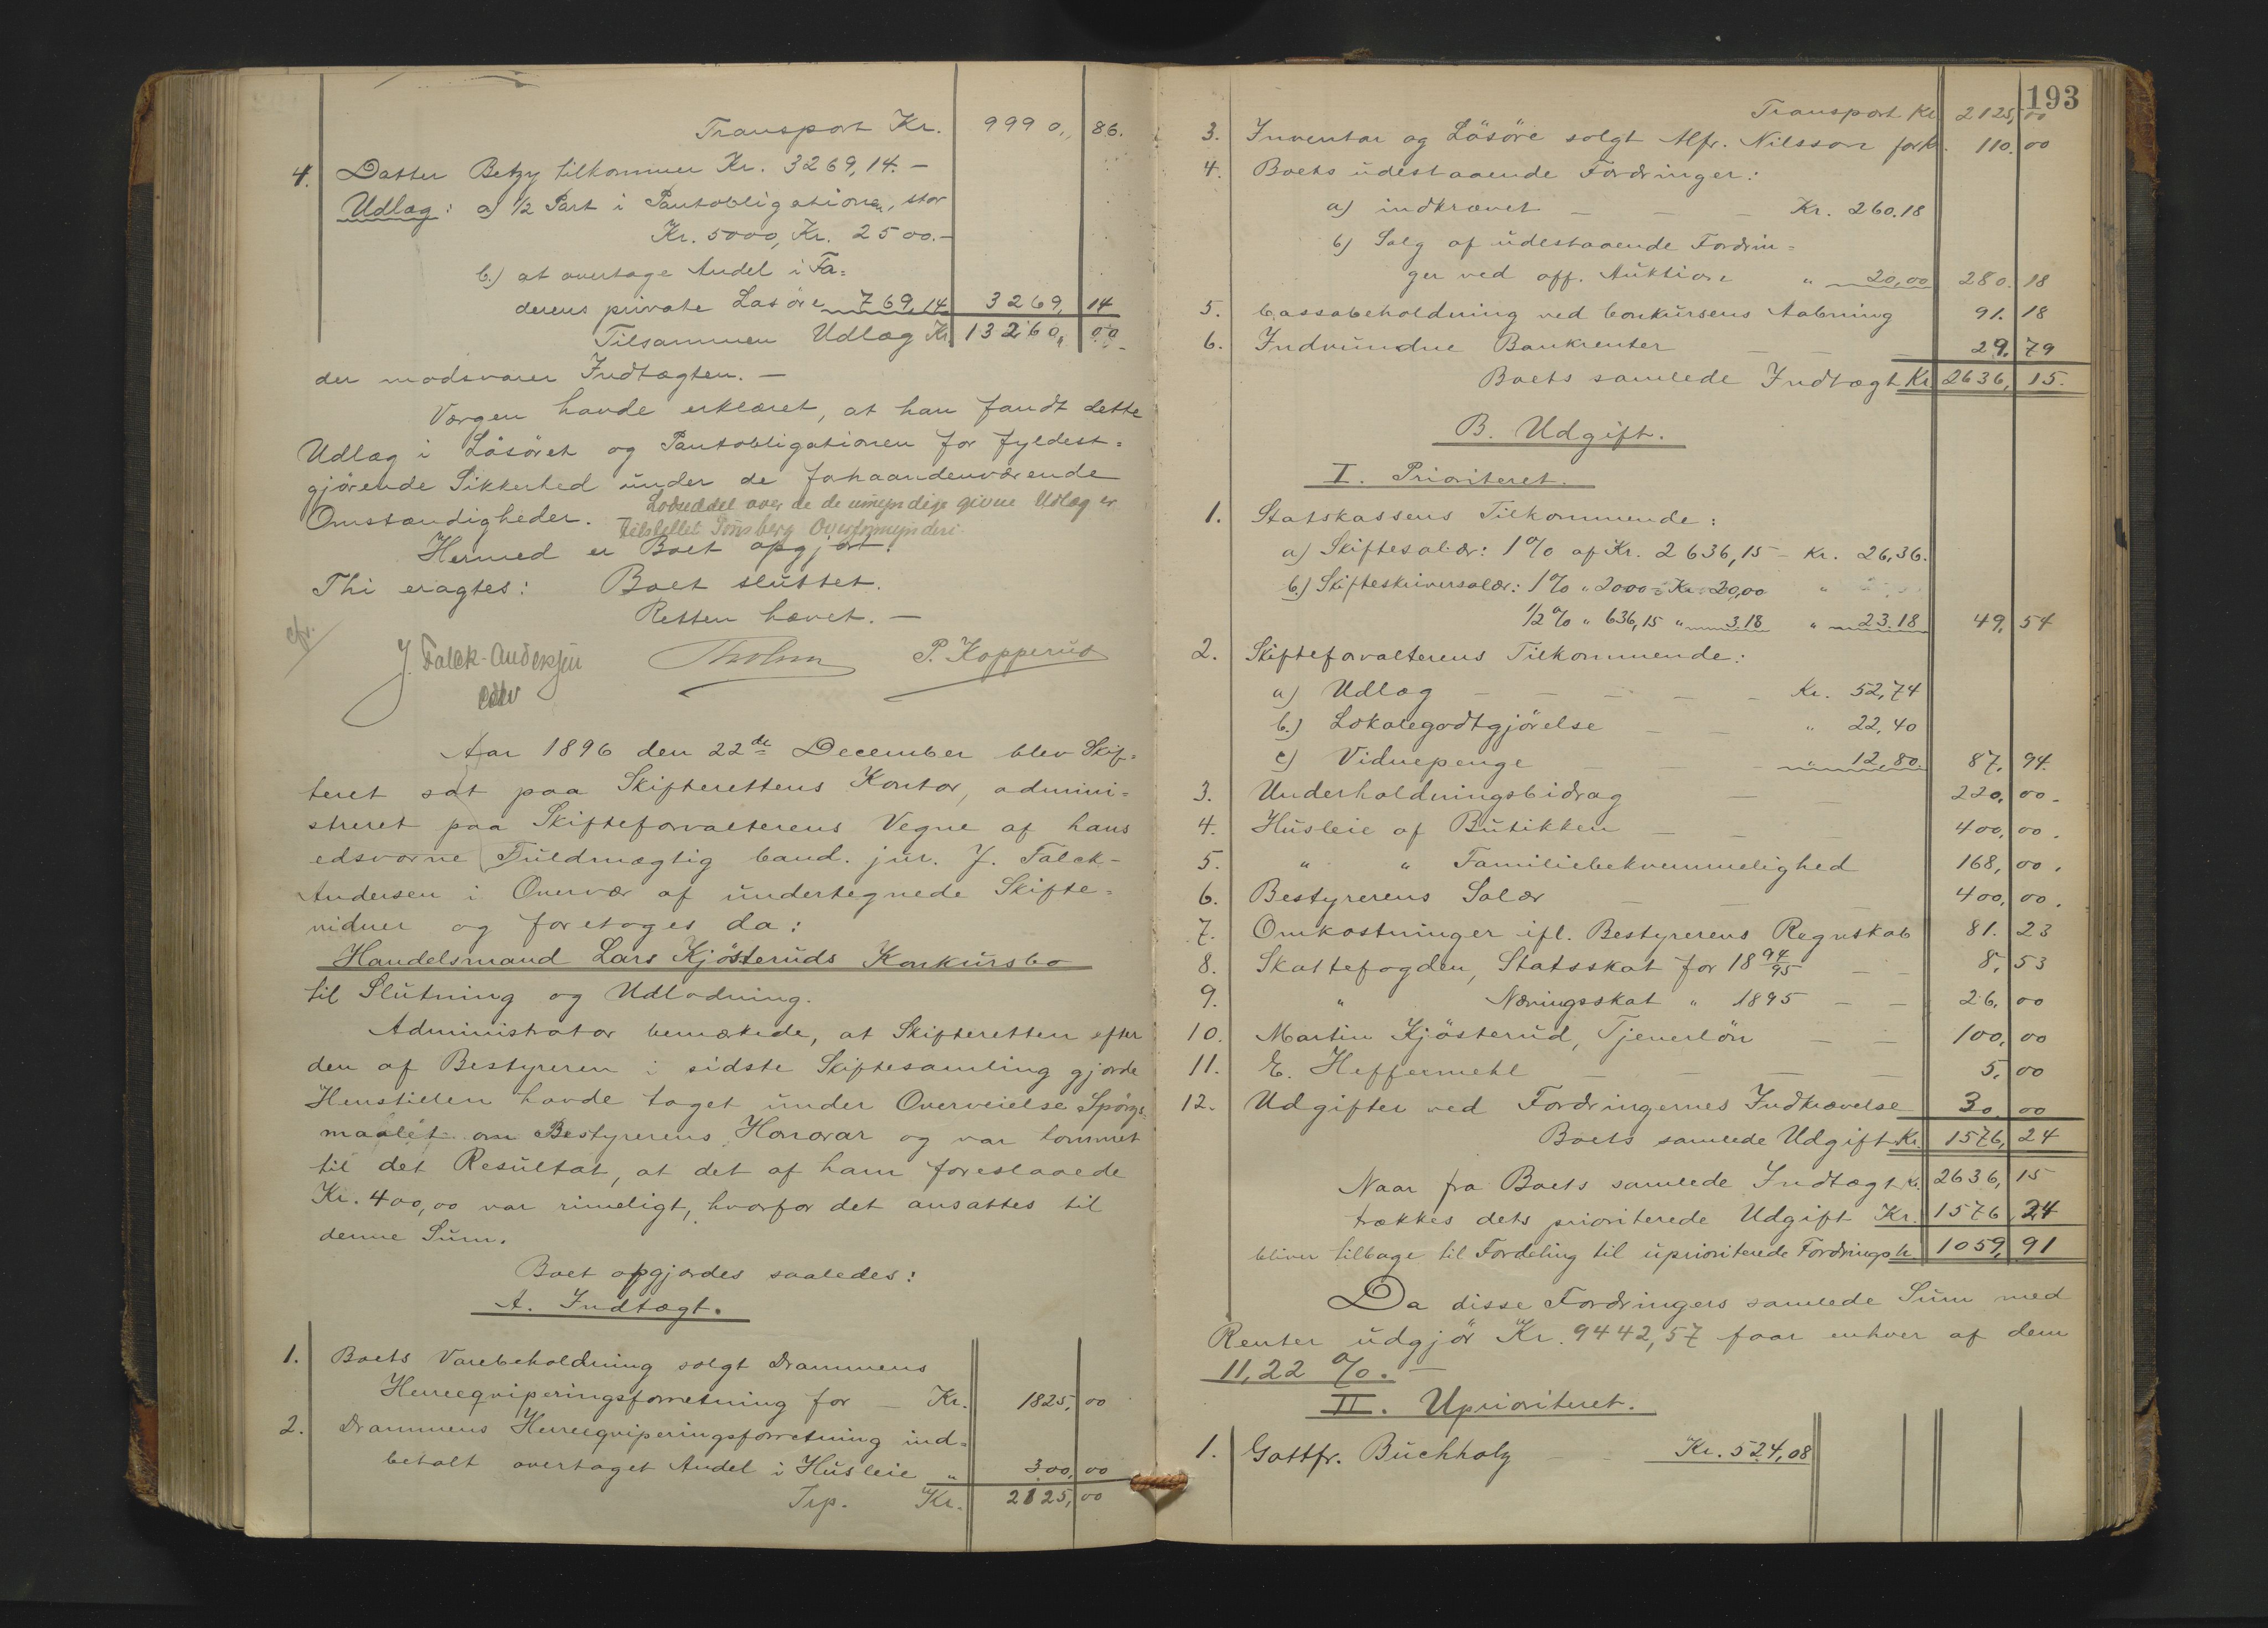 Transport Kr. 9990,, 86.
4. Datter Betzy tilkommer Kr. 3269,14. —
Udlæg: a) 1/2 Part i Pantobligationen, stor
Kr. 5000, Kr. 2500.—
b.) at overtage Andel i Fa=
derens private Løsøre 769,14 3269, 14
Tilsammen Udlæg Kr. 13260,, 00
der modsvarer Indtægten. —
Værgen havde erklæret, at han fandt dette
Udlæg i Løsøret og Pantobligationen for fyldest=
gjørende Sikkerhed under de forhaandenværende
Omstændigheder. — Lodseddel over de de umyndige givne Udlæg er
tilstillet Tønsberg Overformynderi
Hermed er Boet opgjort.
Thi eragtes: Boet sluttet.
Retten hævet. —
cfr.
J. Falck-Andersen P. Kopperud
edsv
Aar 1896 den 22de December blev Skif=
teret sat paa Skifterettens Kontor, admini=
streret paa Skifteforvalterens Vegne af hans
edsvorne Fuldmægtig cand. jur. J. Falck-
Andersen i Overvær af undertegnede Skifte=
vidner og foretoges da:
Handelsmand Lars Kjøsteruds Konkursbo
til Slutning og Udlodning.
Administrator bemærkede, at Skifteretten efter
den af Bestyreren i sidste Skiftesamling gjorde
Henstillen havde taget under Overveielse Spørgs=
maalet om Bestyrerens Honorar og var kommet
til det Resultat, at det af ham foreslaaede
Kr. 400,00 var rimeligt, hvorfor det ansattes til
denne Sum.
Boet opgjordes saaledes:
A. Indtægt.
1. Boets Varebeholdning solgt Drammens
Herreequiperingsforretning for — Kr. 1825, 00
2. Drammens Herreequiperingsforretning ind=
betalt overtaget Andel i Husleie " 300, 00
Trp. Kr. 2125, 00
193
Transport Kr 2125, 00
3. Inventar og Løsøre solgt Alfr. Nilsson for Kr. 110. 00
4. Boets udestaaende Fordringer:
a) indkrævet — — — Kr. 260.18
b) Salg af udestaaende Fordrin=
ger ved off. Auktion " 20,00 280. 18
5. Cassabeholdning ved Conkursens Aabning 91. 18
6. Indvundne Bankrenter — — — 29. 79
Boets samlede Indtægt Kr 2636, 15.
B. Udgift.
I. Prioriteret.
1. Statskassens Tilkommende:
a) Skiftesalær: 1% af Kr. 2636,15 — Kr. 26,36.
b.) Skifteskriversalær: 1% " 2000 = Kr. 20,00
1/2 % " 636,15 " 3.18 " 23.18 49, 54
2. Skifteforvalterens Tilkommende:
a) Udlæg — — — — — Kr. 52,74
b.) Lokalegodtgjørelse — — " 22,40
c) Vidnepenge — — — " 12,80. 87, 94.
3. Underholdningsbidrag — — 220, 00 -
4. Husleie af Butikken — — — 400, 00.
5. " " Familiebekvemmelighed 168, 00.
6. Bestyrerens Salær — — — 400, 00.
7. Omkostninger ifl. Bestyrerens Regnskab 81. 23
8. Skattefogden, Statsskat for 18 94/95 — — 8, 53
9. " Næringsskat " 1895 — — 26, 00
10. Martin Kjøsterud, Tjenerløn — — 100, 00
11. E. Heffermehl — — — — 5, 00
12. Udgifter ved Fordringernes Indkrævelse 30, 00
Boets samlede Udgift Kr. 1576, 24
Naar fra Boets samlede Indtægt Kr. 2636, 15
trækkes dets prioriterede Udgift Kr. 1576 24
bliver tilbage til Fordeling til uprioriterede Fordringer Kr. 1059, 91
Da disse Fordringers samlede Sum med
Renter udgjør Kr. 9442,57 faar enhver af dem
11,22 %. —
II. Uprioriteret.
1. Gottfr. Buchholz Kr. 524,08